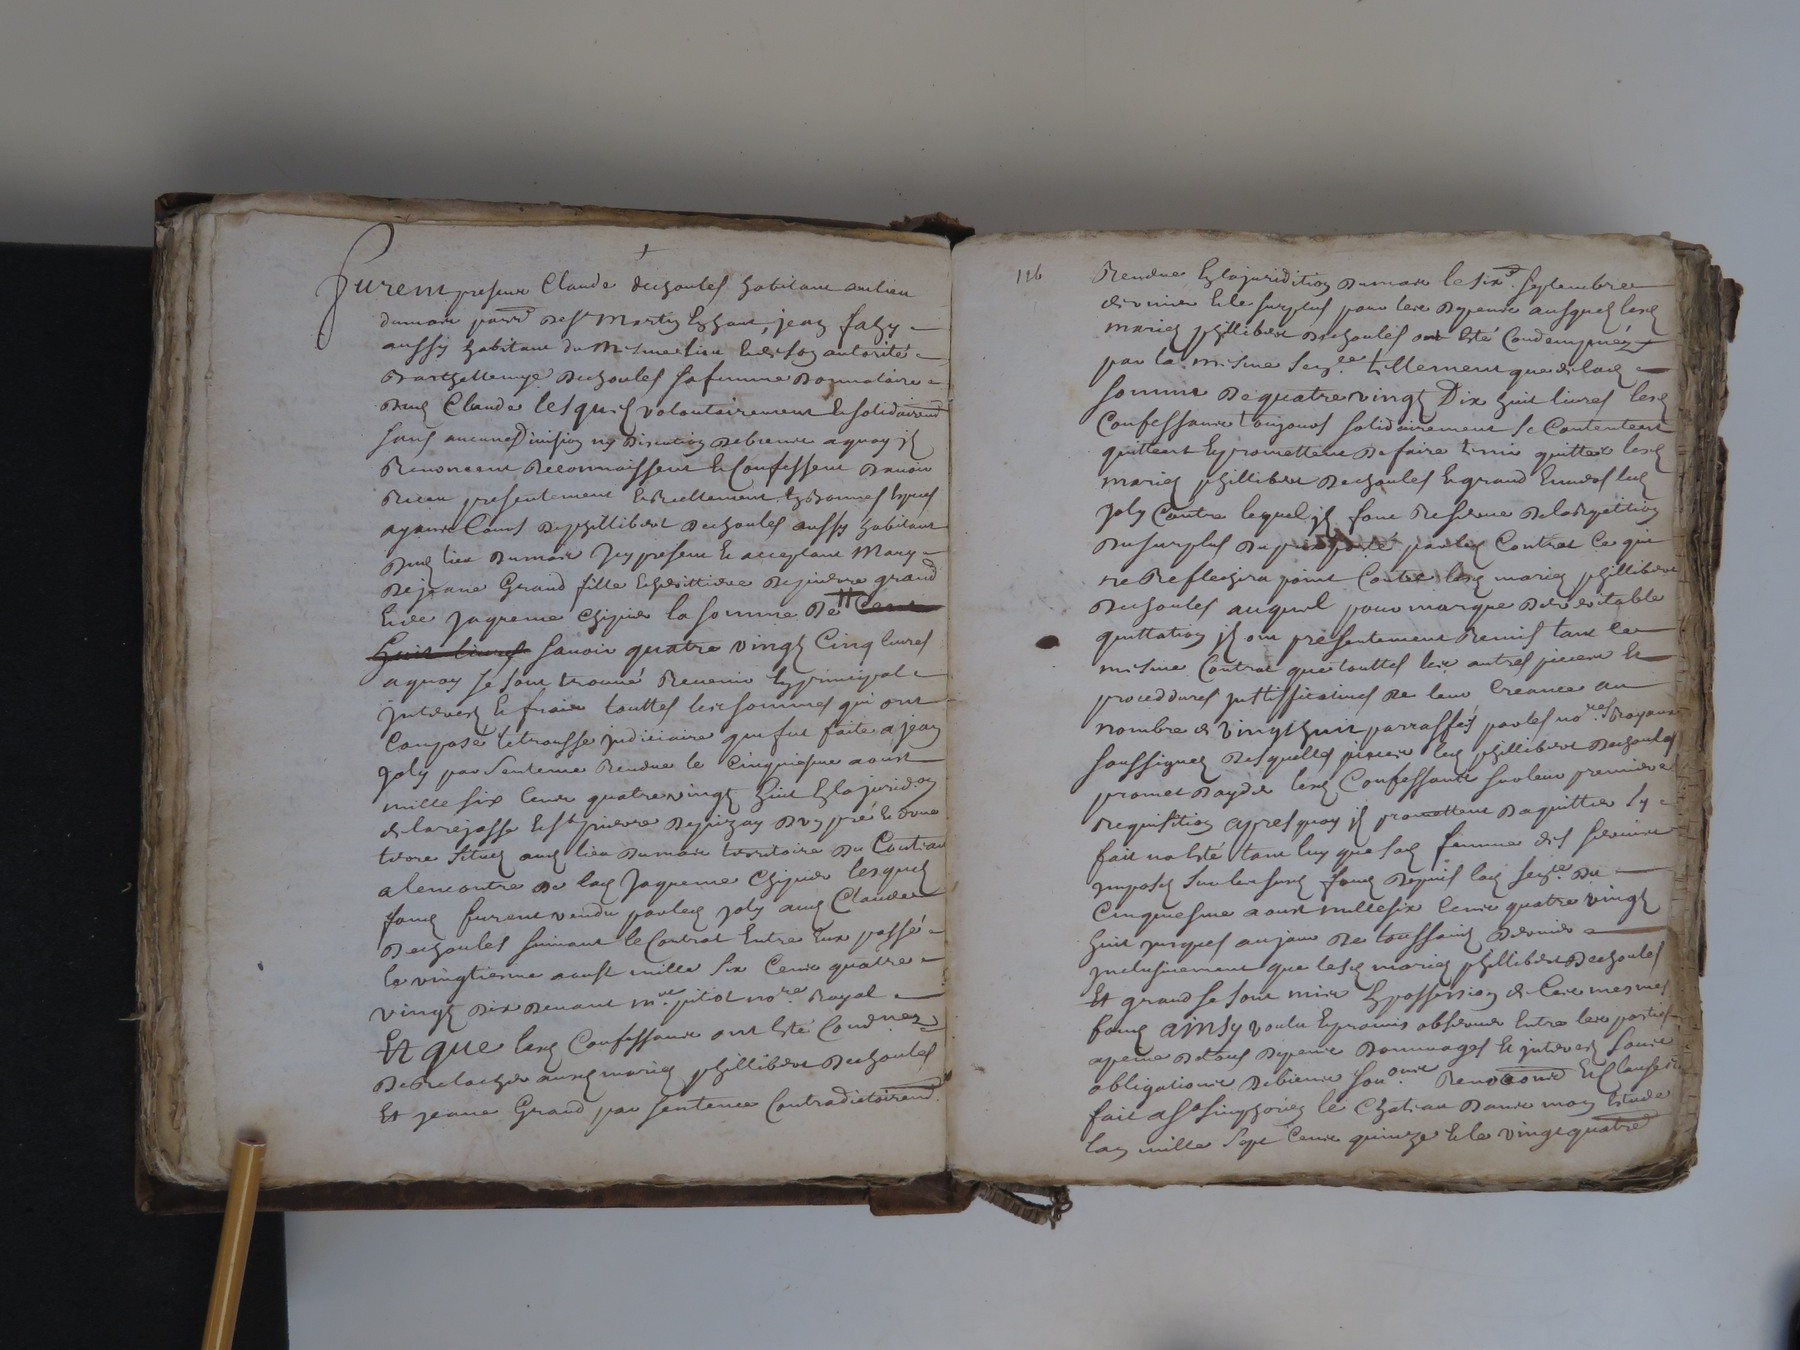 +
Furent presens Claude dechoules habitant au lieu
dumain parr.e de St Martin , jean fahy
aussy habitant du mesme lieu et de son autorité
Barthellemye Dechoules sa femme Donnataire
dud Claude lesquels volontairement et solidairemt
sans aucune Division ny Discution de biens a quoy ils
Renoncent Reconnoissent et Confessent Davoir
Receu presentement et Reellement en bonnes especes
ayants Cours de phillibert Dechoules aussy habitant
dud lieu Dumain icy present et acceptant Mary
de jeane Grand fille et heritiere de pierre grand
et de jaqueme Chipier la somme De Cent
huit livres savoir quatre vingt Cinq livres
a quoy se sont trouvé Revenir en principal
interest et fraix touttes les sommes qui ont
Composé letrousse judiciaire qui fut faite a jean
joly par sentence Rendue le Cinquiesme aoust
mille six cents quatrevingt huit en la jurid.on
de larejasse et St pierre de pizay Dun pré et d'une
terre situes aud lieu Dumain territoire Du
a lencontre de lad jaqueme Chipier lesquels
fonds furent vendu par led joly aud Claude
Dechoules suivant le Contrat Entre Eux passé
le vingtiesme aoust mille six cents quatre
vingt dix devant me pitiot nore Royal
Et que lesd Confessants ont esté Condnez
De Relacher ausd mariez phillibert Dechoules
Et jeane Grand par sentence Contradictoiremt
116
Rendue en la juridition Dumain le six.e septembre
dernier et le surplus pour les Depens ausquels lesd
mariez phillibert Dechoules ont esté Condempnéz
par la mesme senc.e tellement que de lad
somme De quatre vingt Dix huit livres lesd
Confessants toujours solidairement se Contentent
quittent et promettent De faire tenir quittes lesd
mariez phillibert Dechoules et grand Envers led
joly Contre lequel ils font Reserve De la Repetition
Du surplus Du prix porté par led Contrat Ce qui
ne Reflechira point Contre lesd mariez phillibert
Dechoules auquel pour marque De veritable
quittation ils ont presentement Remis tant le
mesme Contrat que touttes les autres pieces et
proceddures justificatives de leur Creance au
nombre de vingt huit parraffés par les nores Royaux
soussignez Desquelles pieces led phillibert Dechoules
promet Dayder lesd Confessants sur leur premiere
Requisition apres quoy ils promettent Daquitter sy
fait na esté tant luy que sad femme des servis
imposés sur lesusd fonds Depuis lad senc.e Du
Cinquiesme aoust mille six Cents quatre vingt
huit jusques au jour De toussaint Dernier
inclusivement que lesd mariez phillibert Dechoules
Et grand se sont mis En possession de Ces mesmes
fonds ainsy voulu Et promis observer Entre les parties
a peine De tous Depens Dommages Et interest sous
obligations De biens Renoons Et Clauses
fait a St simphorien le Chateau Dans mon Estude
lan mille sept Cents quinze Et le vingtquatre